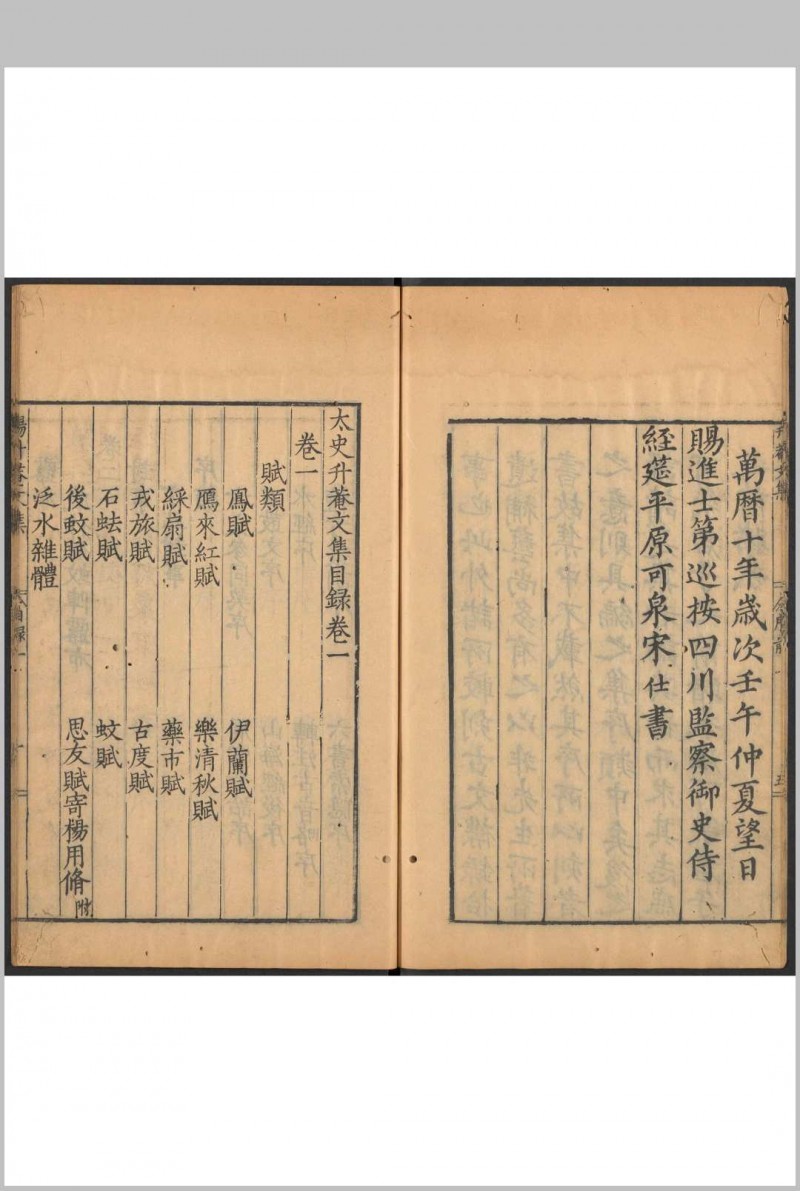 萬曆十年歲次壬午仲夏望日
賜進士第巡按四川監察御史侍
經筵平原可泉宋仕書
太史升菴文集目録卷一
卷一
賦類
鳳賦 伊蘭賦
鴈來紅賦 樂清秋賦
綵扇賦 藥市賦
戎旅賦 古度賦
石䖨賦 蚊賦
後蚊賦 思友賦寄楊用脩附
泛水雜體